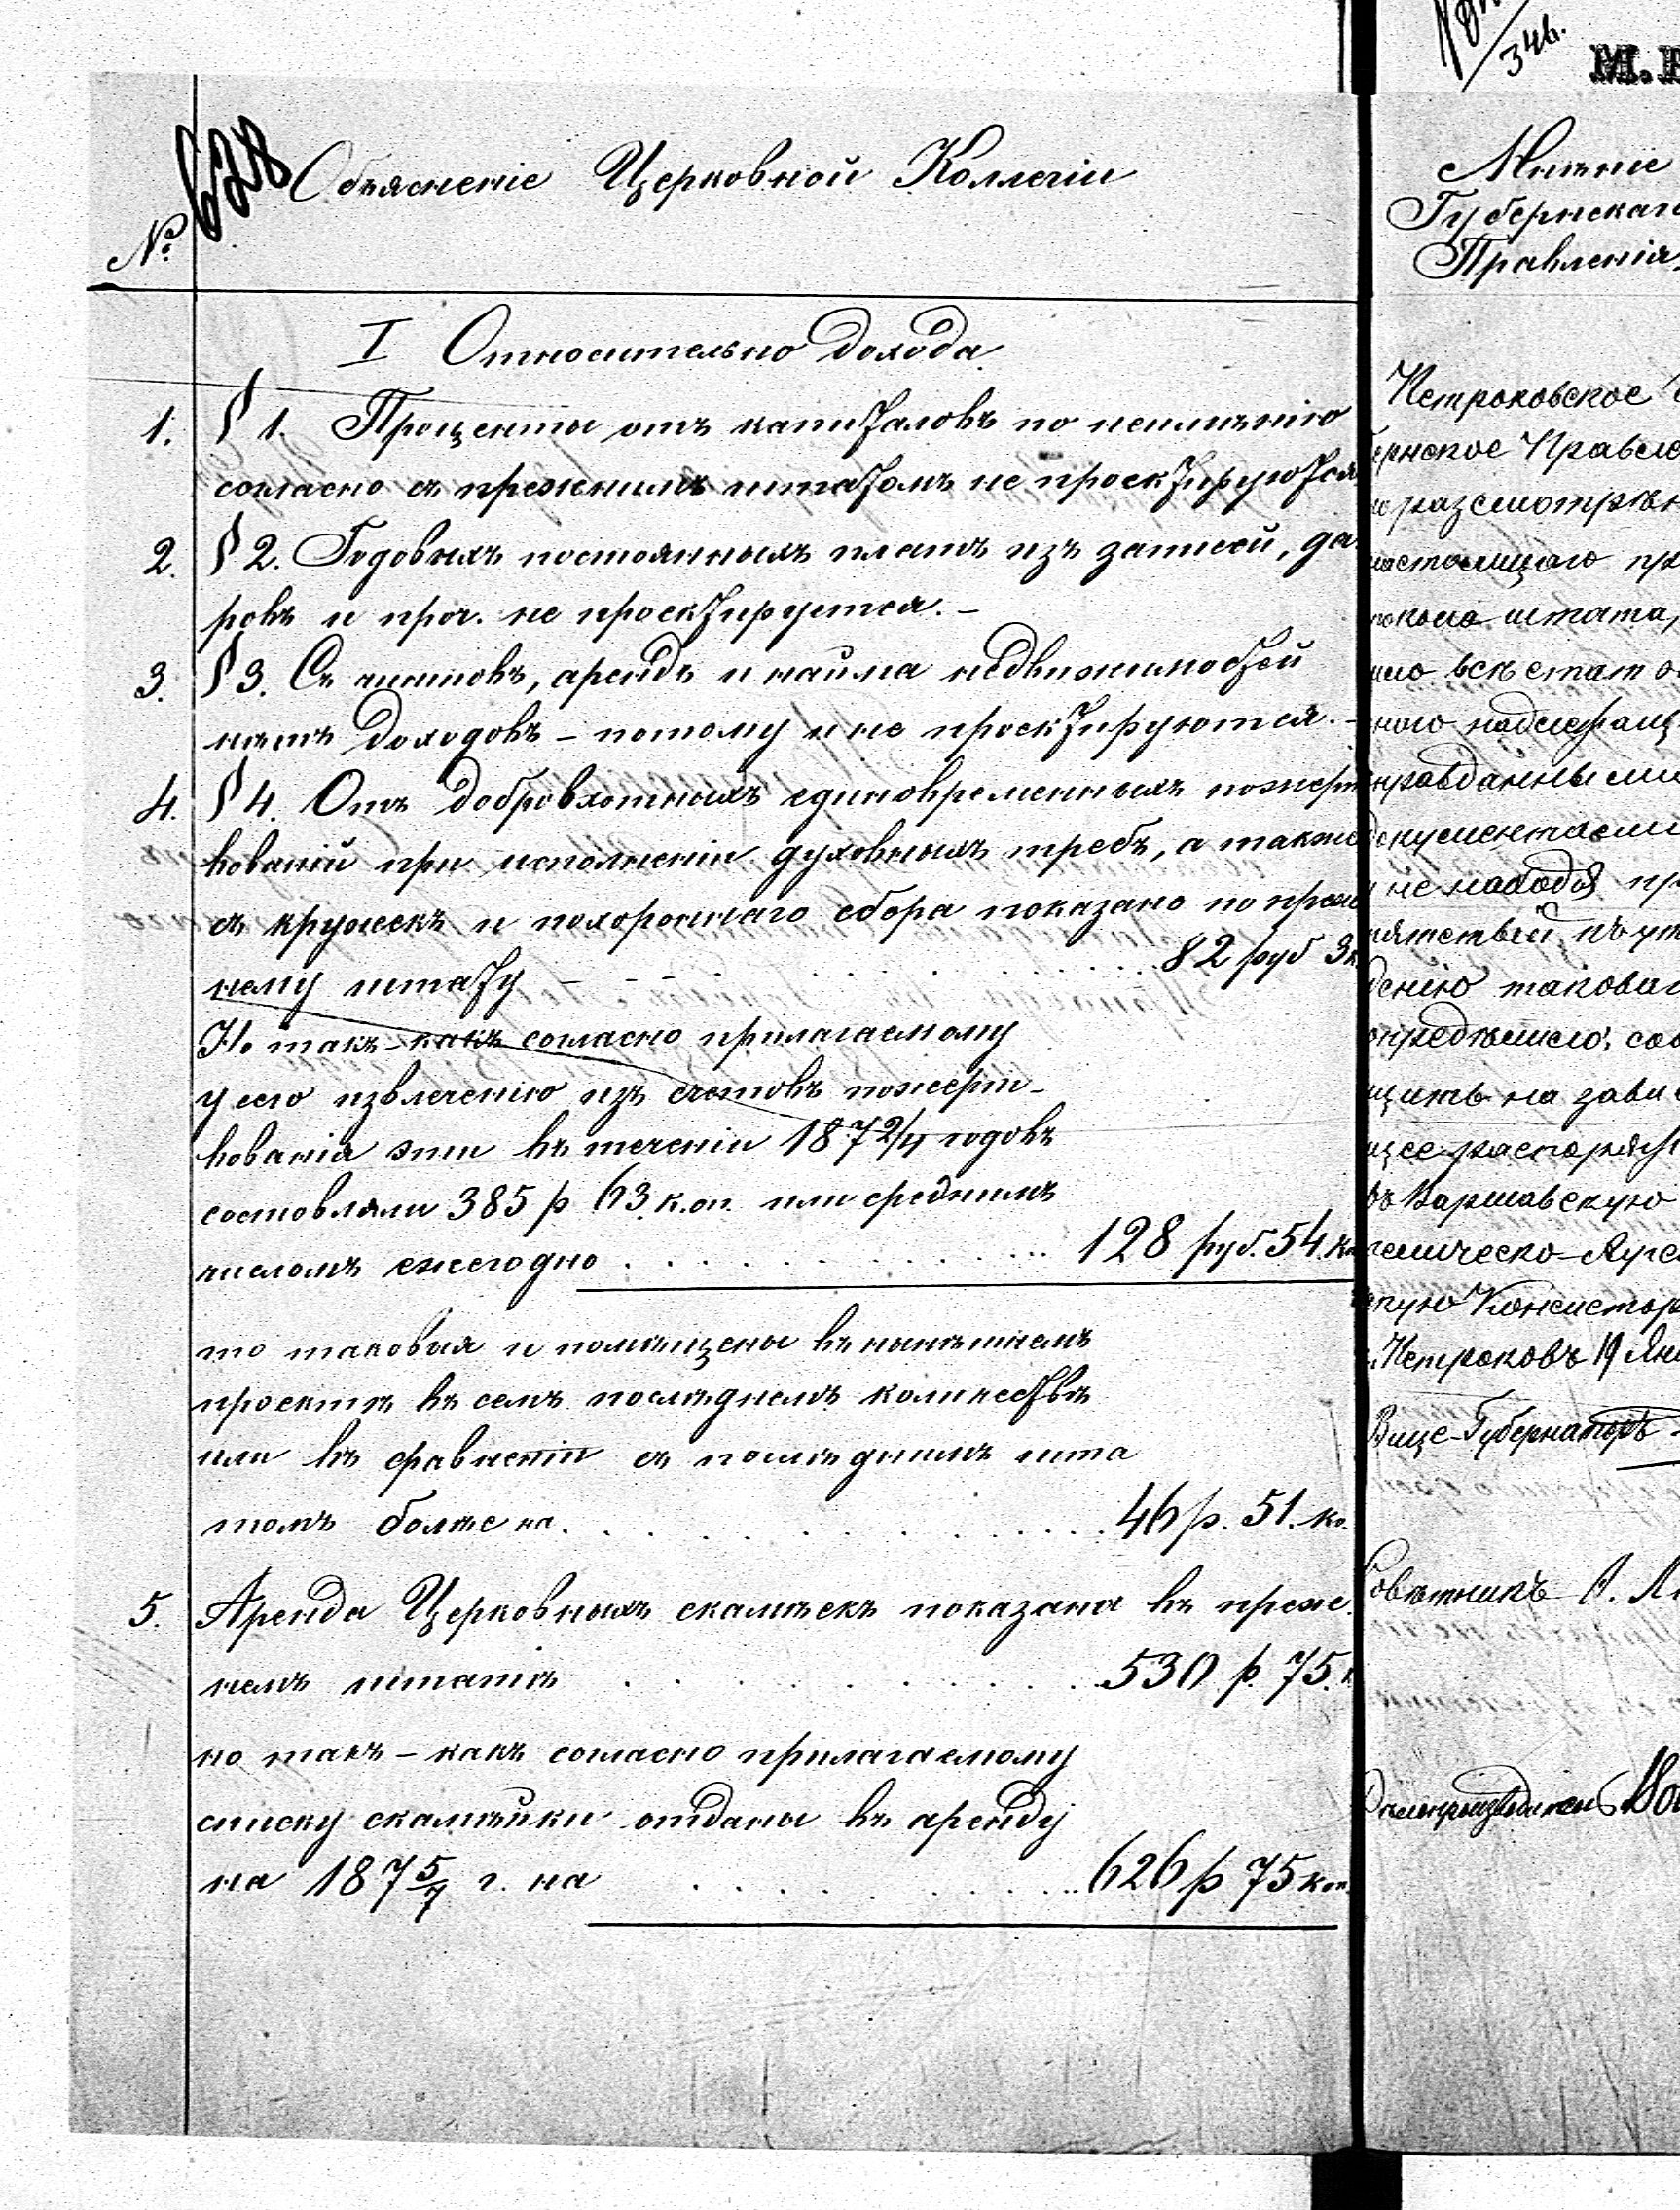 628
Объясненіе Церковной Коллегіи
№
I Относительно дохода
1. § 1. Проценты отъ капиталовъ по неимѣнію
согласно съ прежнимъ штатомъ не проектируются
2. § 2. Годовыхъ постоянныхъ платъ изъ записей, да
ровъ и проч. не проектируется. –
3. § 3. Съ чиншовъ, арендъ и найма недвижимостей
нѣтъ доходовъ – потому и не проектируются. –
4. § 4. Отъ добровхотныхъ единовременныхъ пожерт
вованій при исполненіи духовныхъ требъ, а также
съ кружекъ и похороннаго сбора показано по преж
нему штату 82 руб 3 к
Но такъ–какъ согласно прилагаемому
у сего извлеченію изъ счетовъ пожерт–
вованія эти въ теченіи 187 2/4 годовъ
составляли 385 р 63 коп. или среднимъ
числомъ ежегодно 128 руб. 54 к
то таковыя и помѣщены въ нынѣшнемъ
проектѣ въ семъ послѣднемъ количествѣ
или въ сравненіи съ послѣднимъ шта
томъ болѣе на 46 р. 51. ко.
5. Аренда Церковныхъ скамѣекъ показана въ преж
немъ штатѣ 530 р. 75. к
но такъ – какъ согласно прилагаемому
списку скамѣйки отданы въ аренду
на 187 5/7 г. на 626 р 75 коп.
346.
М.
Мнѣніе
Губернскаго
Правленія
Петроковское
ернское Правле
разсмотрѣн
настоящаго пр
штата,
всѣ стат
ного надлежащ
правданными
документами
не находя пр
пятствій къ ут
денію таковаг
опредѣлило: соо
щить на зави
щее распоряж
въ Варшавскую
гелическо–Аугс
скую Консистор
г. Петроковъ 19 Янв
Вице–Губернаторъ
Совѣтникъ А.